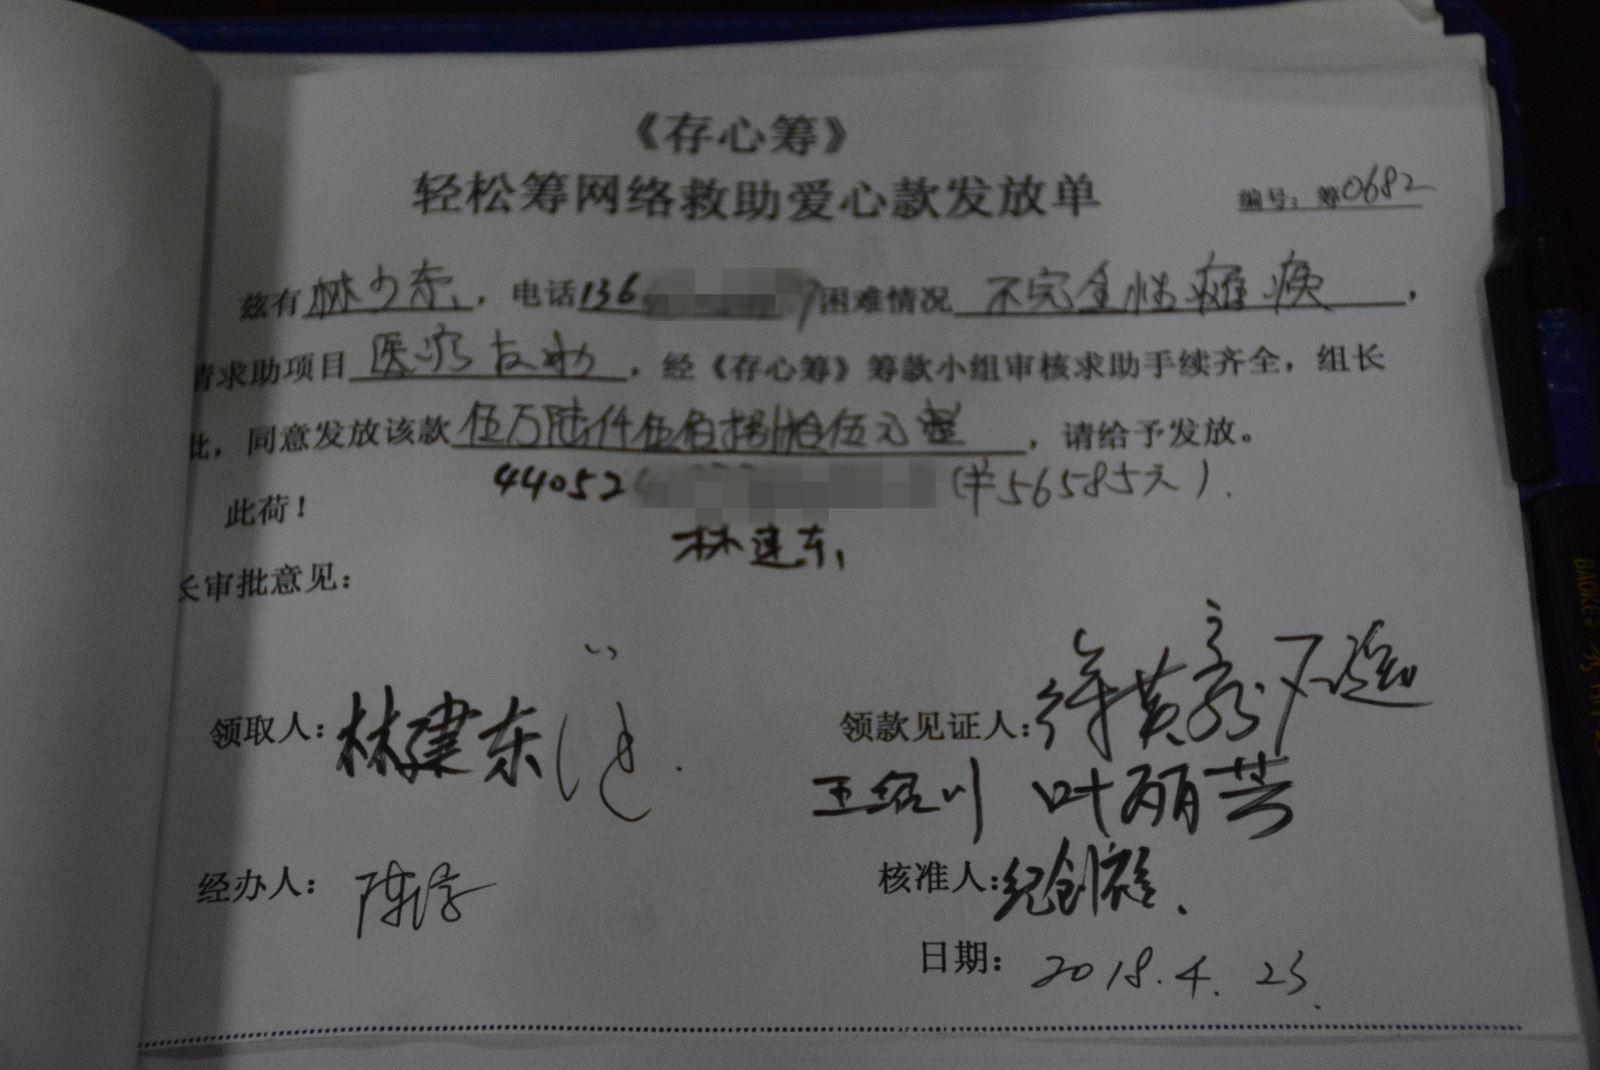 《存心筹》
轻松筹网络救助爱心款发放单
编号：筹0682
兹有林少东，电话136 困难情况不完全性瘫痪，
请求助项目医疗救助，经《存心筹》筹款小组审核求助手续齐全，组长
批，同意发放该款伍万陆仟伍佰捌拾伍元整，请给予发放。
44052 (¥56585元).
此荷！
林建东
长审批意见：
领取人：林建东
领款见证人：
王绍川 叶丽芸
经办人：陈
核准人：纪创
日期：2018.4.23